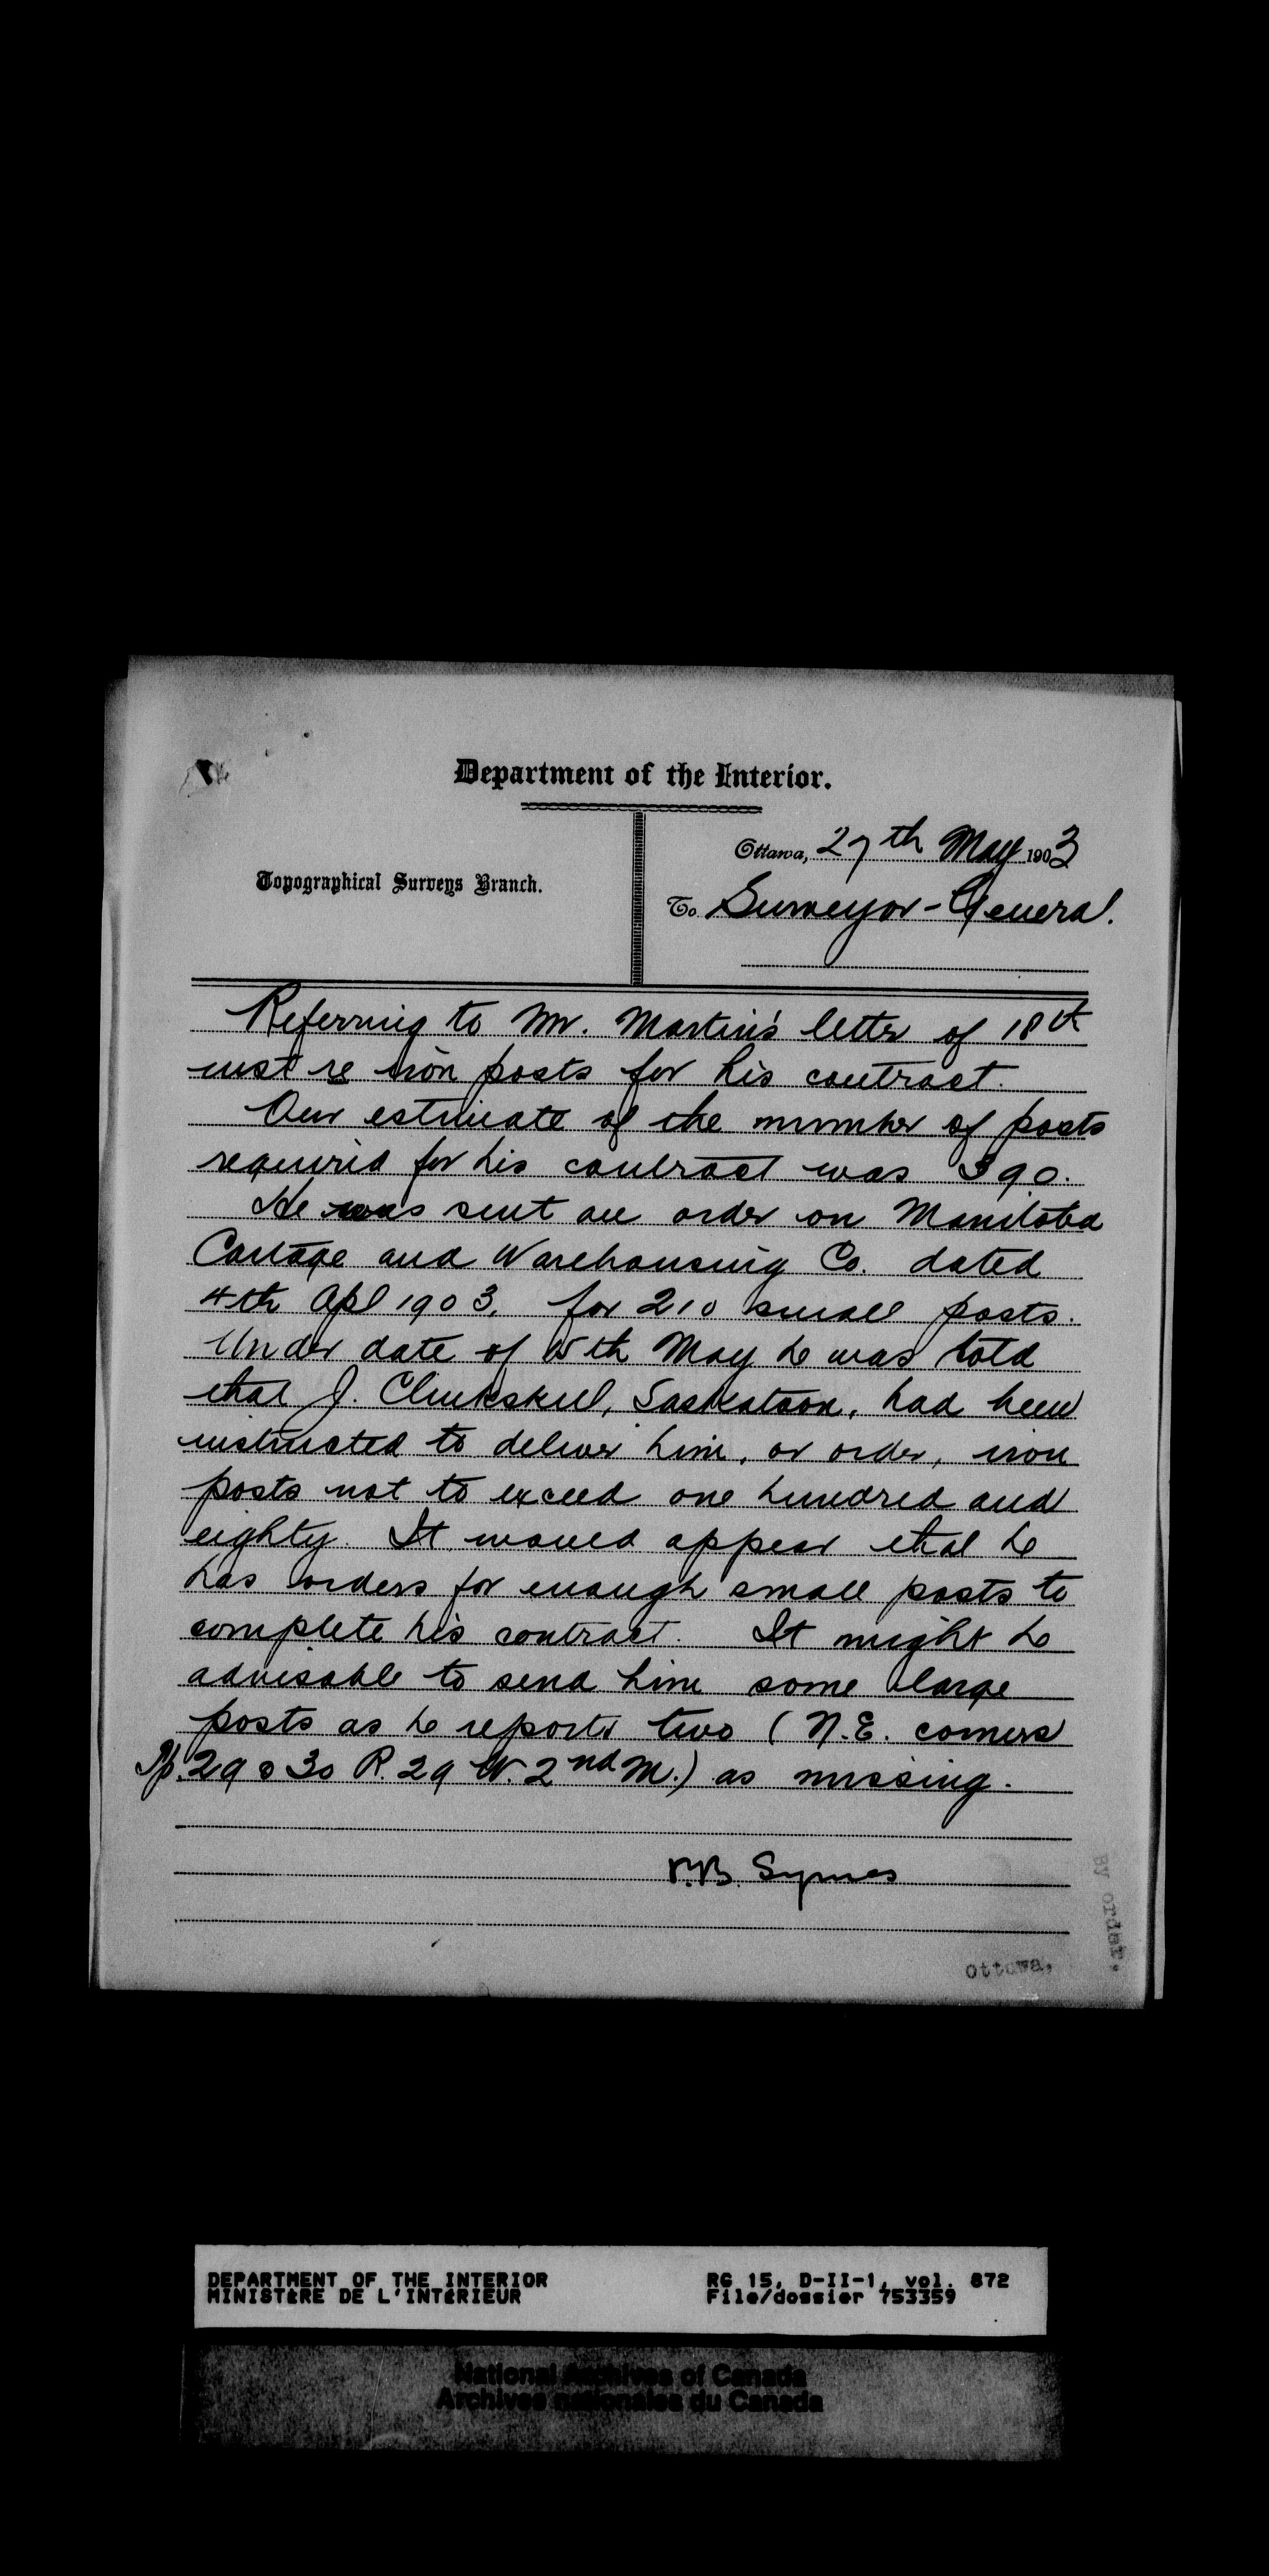 Department of the Interior.
Ottawa, 27th May 1903
Topographical Surveys Branch.
To Surveyor-General.
Referring to Mr. Martin's letter of 18th
inst re iron posts for his contract.
Our estimate of the number of posts
required for his contract was 390.
He was sent an order on Manitoba
Cartage and Warehousing Co. dated
4th Apl 1903, for 210 small posts.
Under date of 15th May he was told
that J. Clinkskill, Saskatoon, had been
instructed to deliver him, or order, iron
posts not to exceed one hundred and
eighty. It would appear that he
has orders for enough small posts to
complete his contract. It might be
advisable to send him some large
posts as he reports two (N.E. corners
Tp. 29 & 30 R. 29 W. 2nd M.) as missing.
P.B. Symes
By order.
Ottawa,
DEPARTMENT OF THE INTERIOR
MINISTÈRE DE L'INTÉRIEUR
RG 15, D-II-1, vol. 872
File/dossier 753359
National Archives of Canada
Archives nationales du Canada